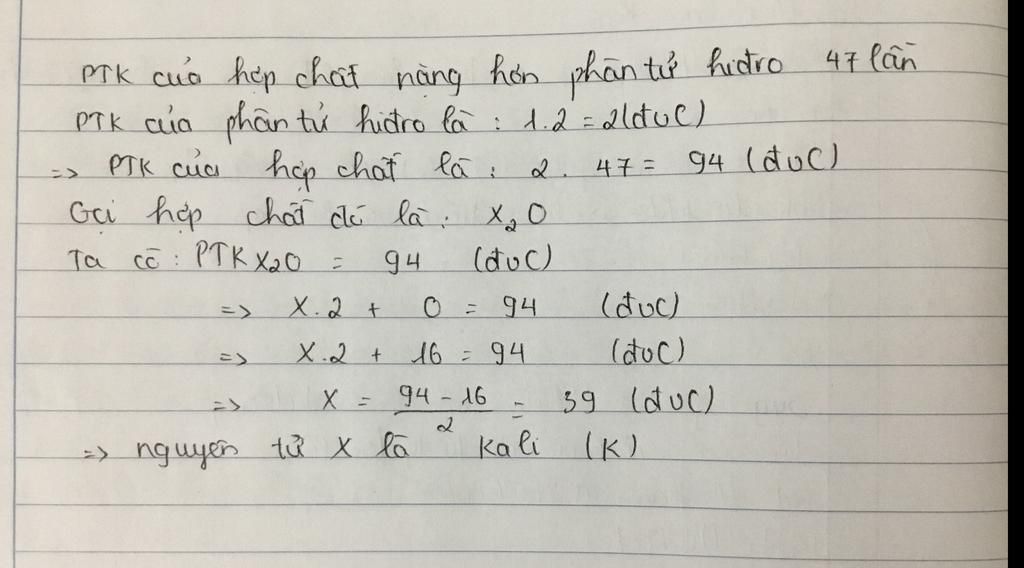 PTK của hợp chất nặng hơn phân tử hiđro 47 lần
PTK của phân tử hiđro là : 1.2 = 2(đvC)
=> PTK của hợp chất là : 2 . 47 = 94 (đvC)
Gọi hợp chất đó là : X₂O
Ta có : PTK X₂O = 94 (đvC)
=> X.2 + O = 94 (đvC)
=> X.2 + 16 = 94 (đvC)
=> X = (94 - 16)/2 = 39 (đvC)
=> nguyên tử X là Kali (K)